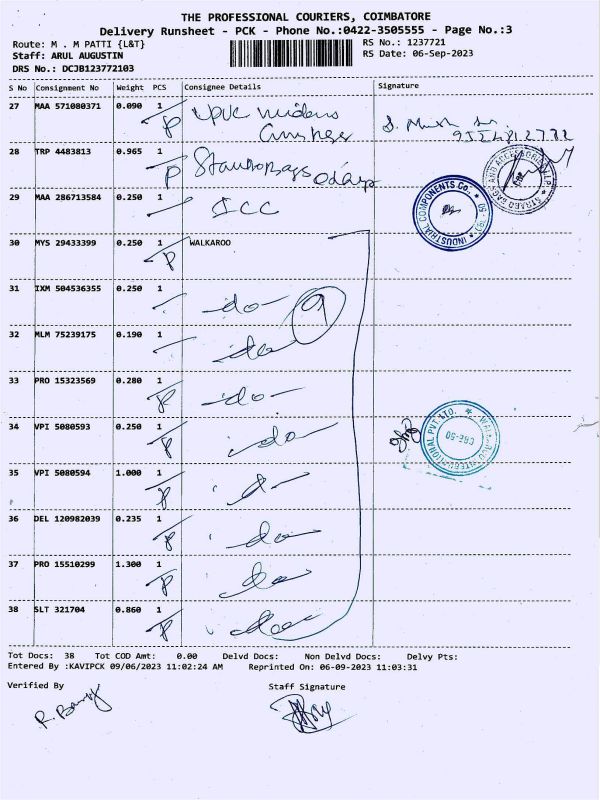 THE PROFESSIONAL COURIERS, COIMBATORE
Delivery Runsheet - PCK - Phone No.:0422-3505555 - Page No.:3
Route: M . M PATTI {L&T}
RS No.: 1237721
Staff: ARUL AUGUSTIN
RS Date: 06-Sep-2023
DRS No.: DCJB123772103
S No Consignment No Weight PCS Consignee Details Signature
27 MAA 571080371 0.090 1
28 TRP 4483813 0.965 1
29 MAA 286713584 0.250 1 ICC
30 MYS 29433399 0.250 1 WALKAROO
31 IXM 504536355 0.250 1 -do-
32 MLM 75239175 0.190 1 do
33 PRO 15323569 0.280 1 -do-
34 VPI 5080593 0.250 1 -do-
35 VPI 5080594 1.000 1 -d-
36 DEL 120982039 0.235 1 -do-
37 PRO 15510299 1.300 1 -do-
38 SLT 321704 0.860 1 -do-
INDUSTRIAL COMPONENTS Co.,
CBE-50
Tot Docs: 38 Tot COD Amt: 0.00 Delvd Docs: Non Delvd Docs: Delvy Pts:
Entered By :KAVIPCK 09/06/2023 11:02:24 AM Reprinted On: 06-09-2023 11:03:31
Verified By Staff Signature